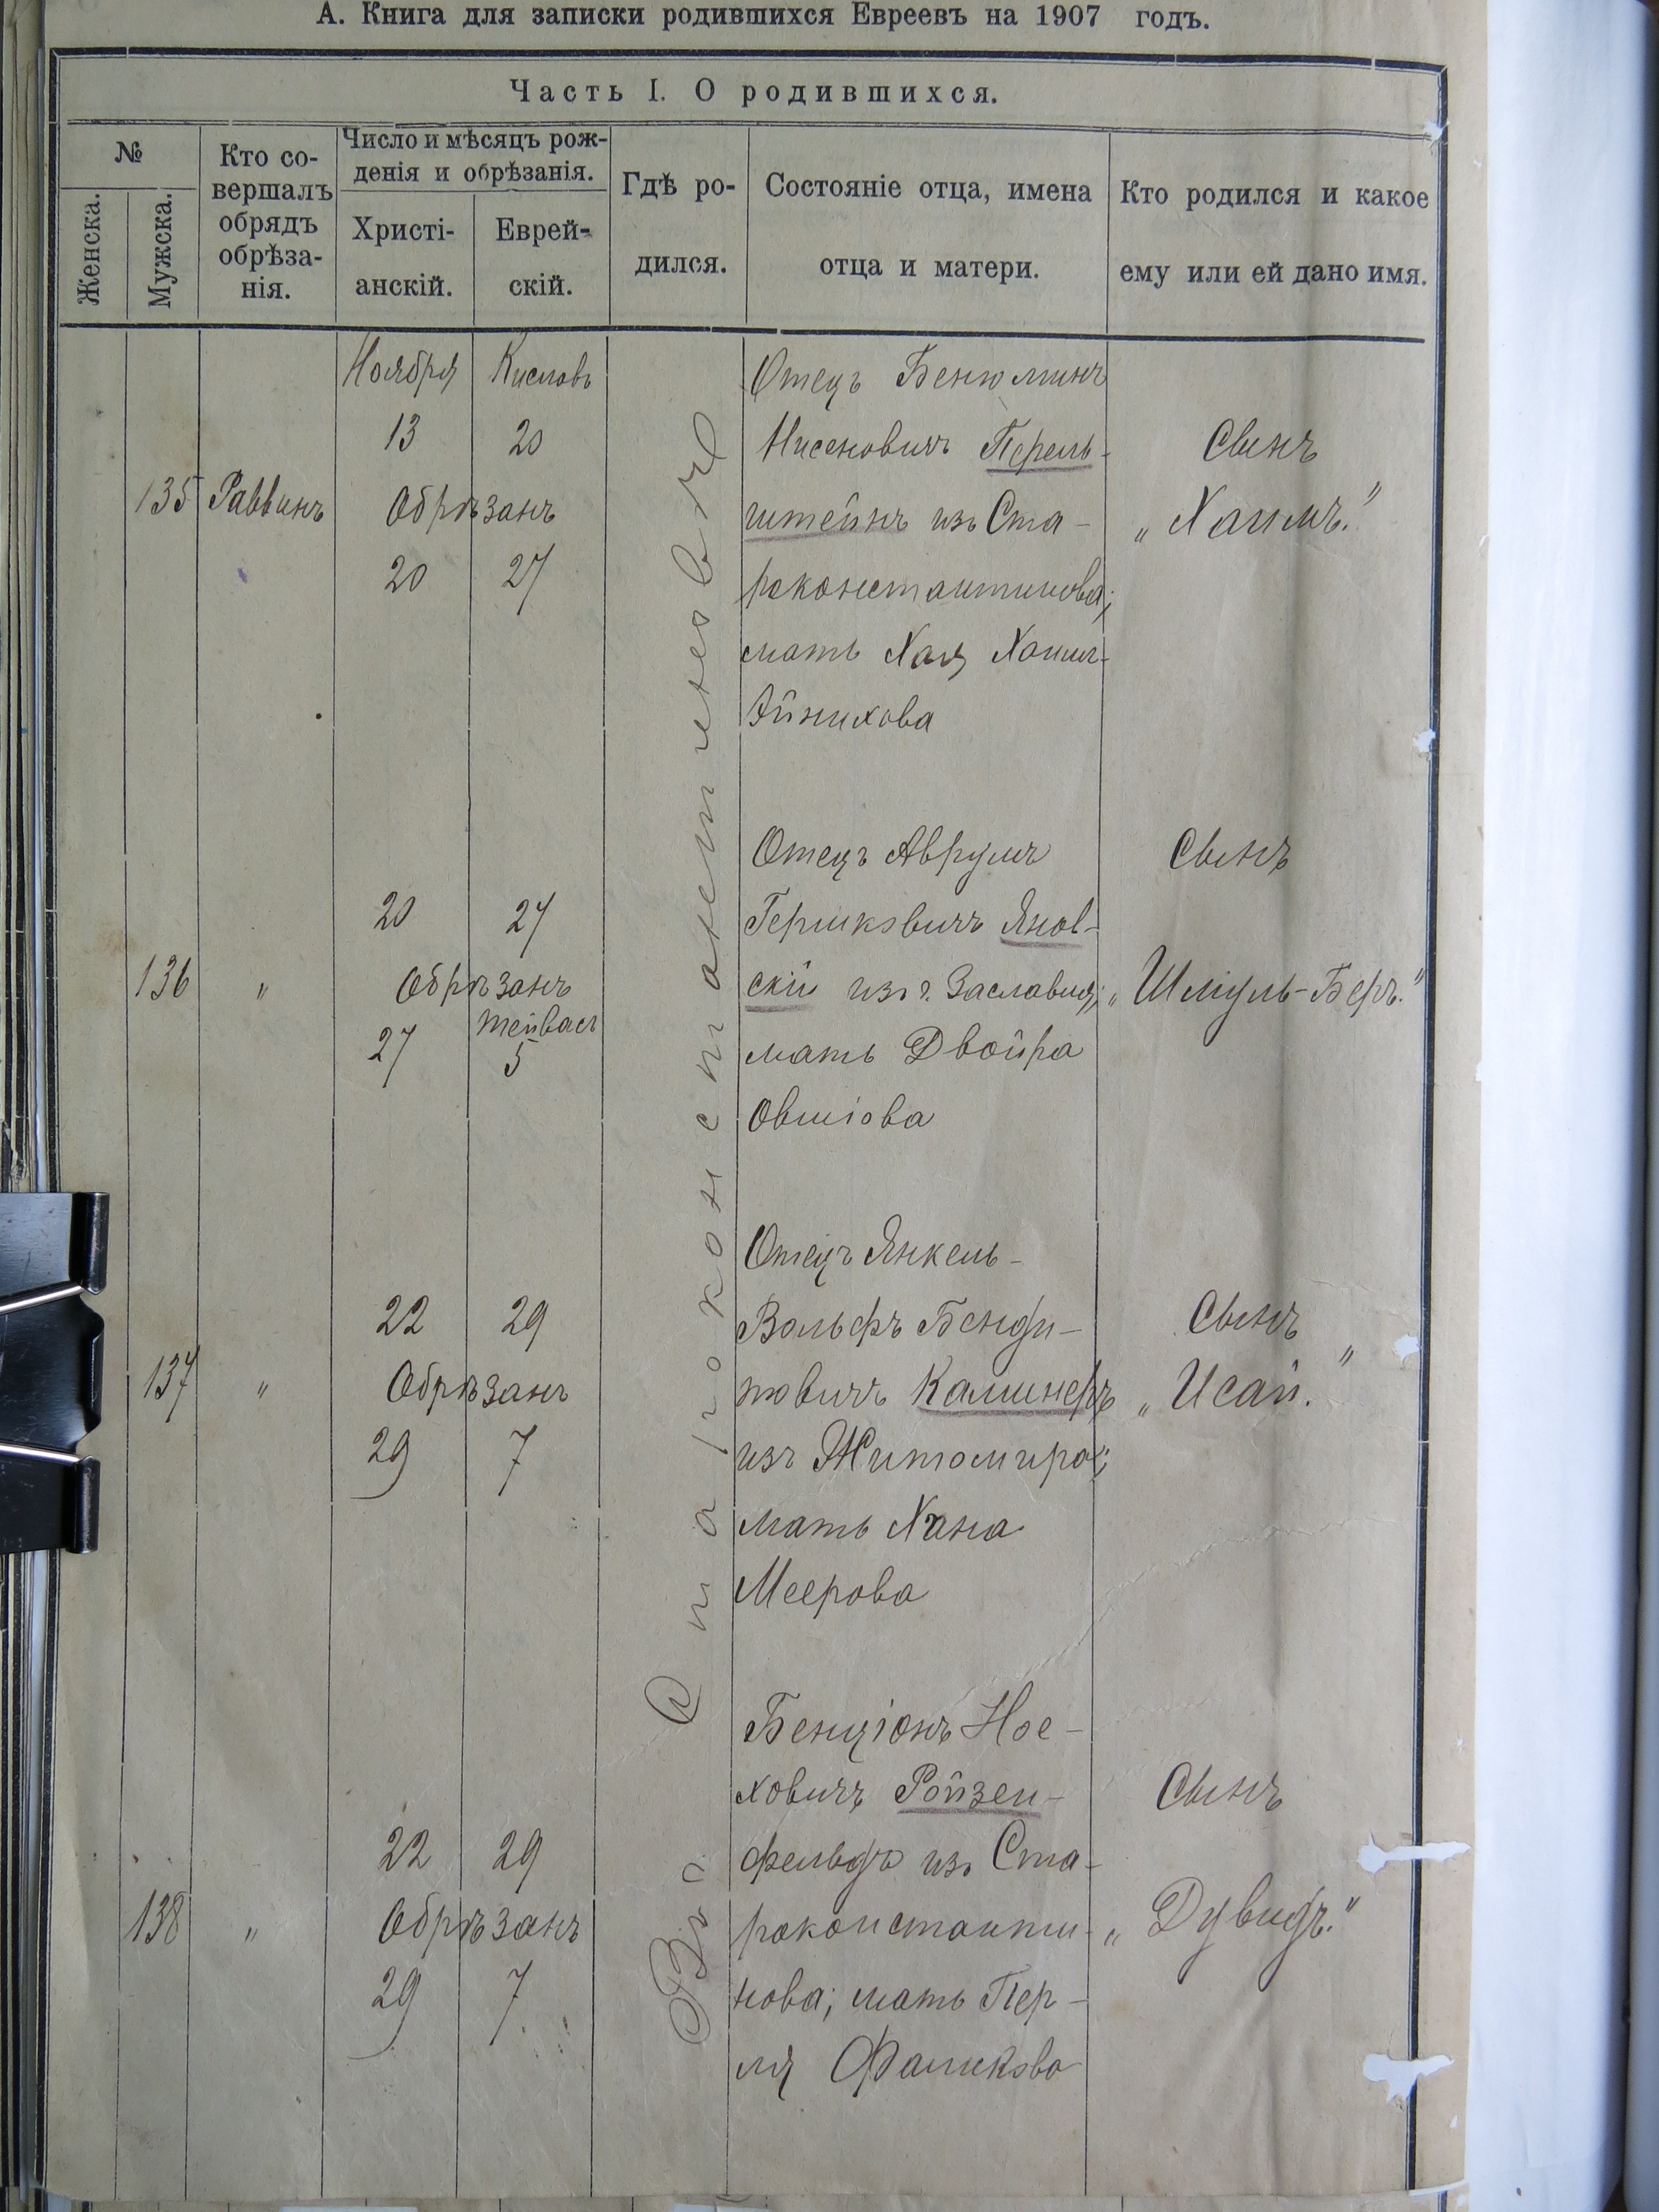 А. Книга для записки родившихся Евреевъ на 1907 годъ.
Часть I. О родившихся.
№
Женска.
Мужска.
Кто со-
вершалъ
обрядъ
обрѣза-
нія.
Число и мѣсяцъ рож-
денія и обрѣзанія.
Христі-
анскій.
Еврей-
скій.
Гдѣ ро-
дился.
Состояніе отца, имена
отца и матери.
Кто родился и какое
ему или ей дано имя.
Въ г. Староконстантиновѣ
Ноября Кислевъ
13 20
135 Раввинъ Обрѣзанъ
20 27
Отецъ Бенюминъ
Нисеновичъ Перель-
штейнъ изъ Ста-
роконстантинова;
мать Хая Хаим-
Эйнихова
Сынъ
„Хаимъ."
20 27
136 " Обрѣзанъ
Тейвас
27 5
Отецъ Аврумъ
Гершковичъ Янов-
скій изъ г. Заславля;
мать Двойра
Овшіова
Сынъ
„Шмуль-Беръ."
22 29
137 " Обрѣзанъ
29 7
Отецъ Янкель-
Вольфъ Бенди-
товичъ Калинеръ
изъ Житомира;
мать Хана
Меерова
Сынъ
„Исай."
22 29
138 " Обрѣзанъ
29 7
Бенціонъ Ное-
ховичъ Ройзен-
фельдъ изъ Ста-
роконстанти-
нова; мать Пер-
ля Фаликова
Сынъ
„Дувидъ."